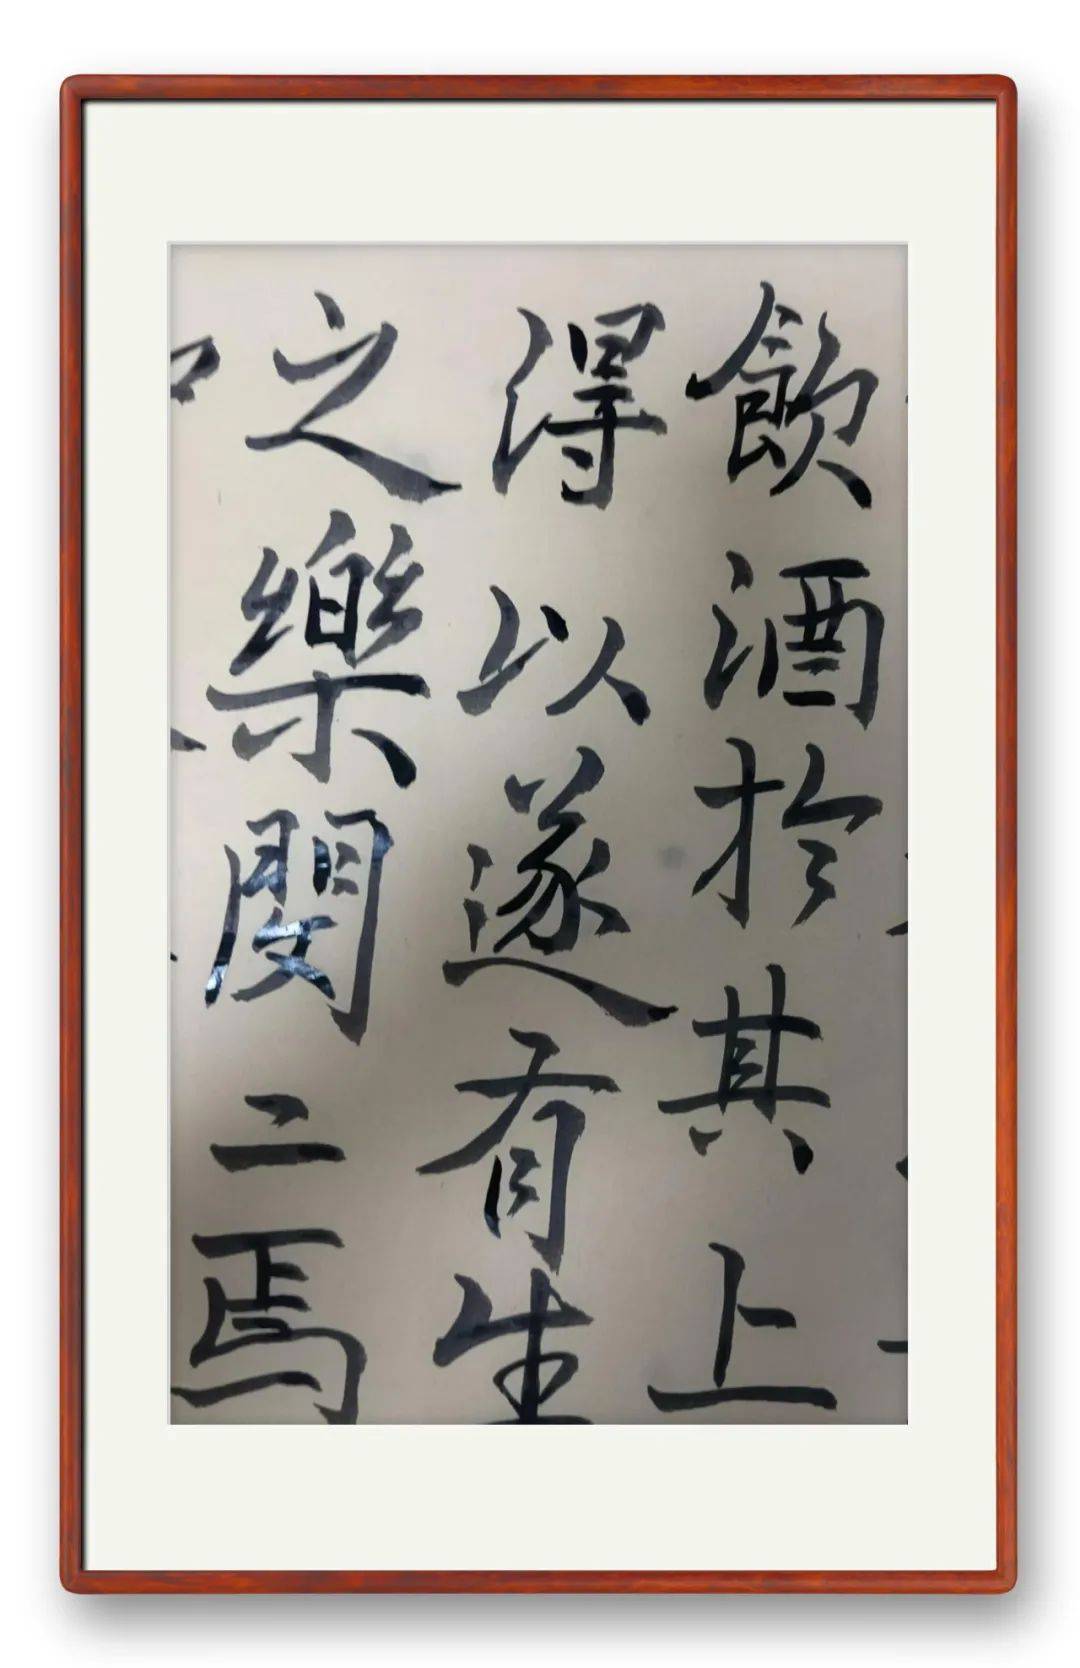 飲酒於其上
得以遂有生
之樂閔二焉